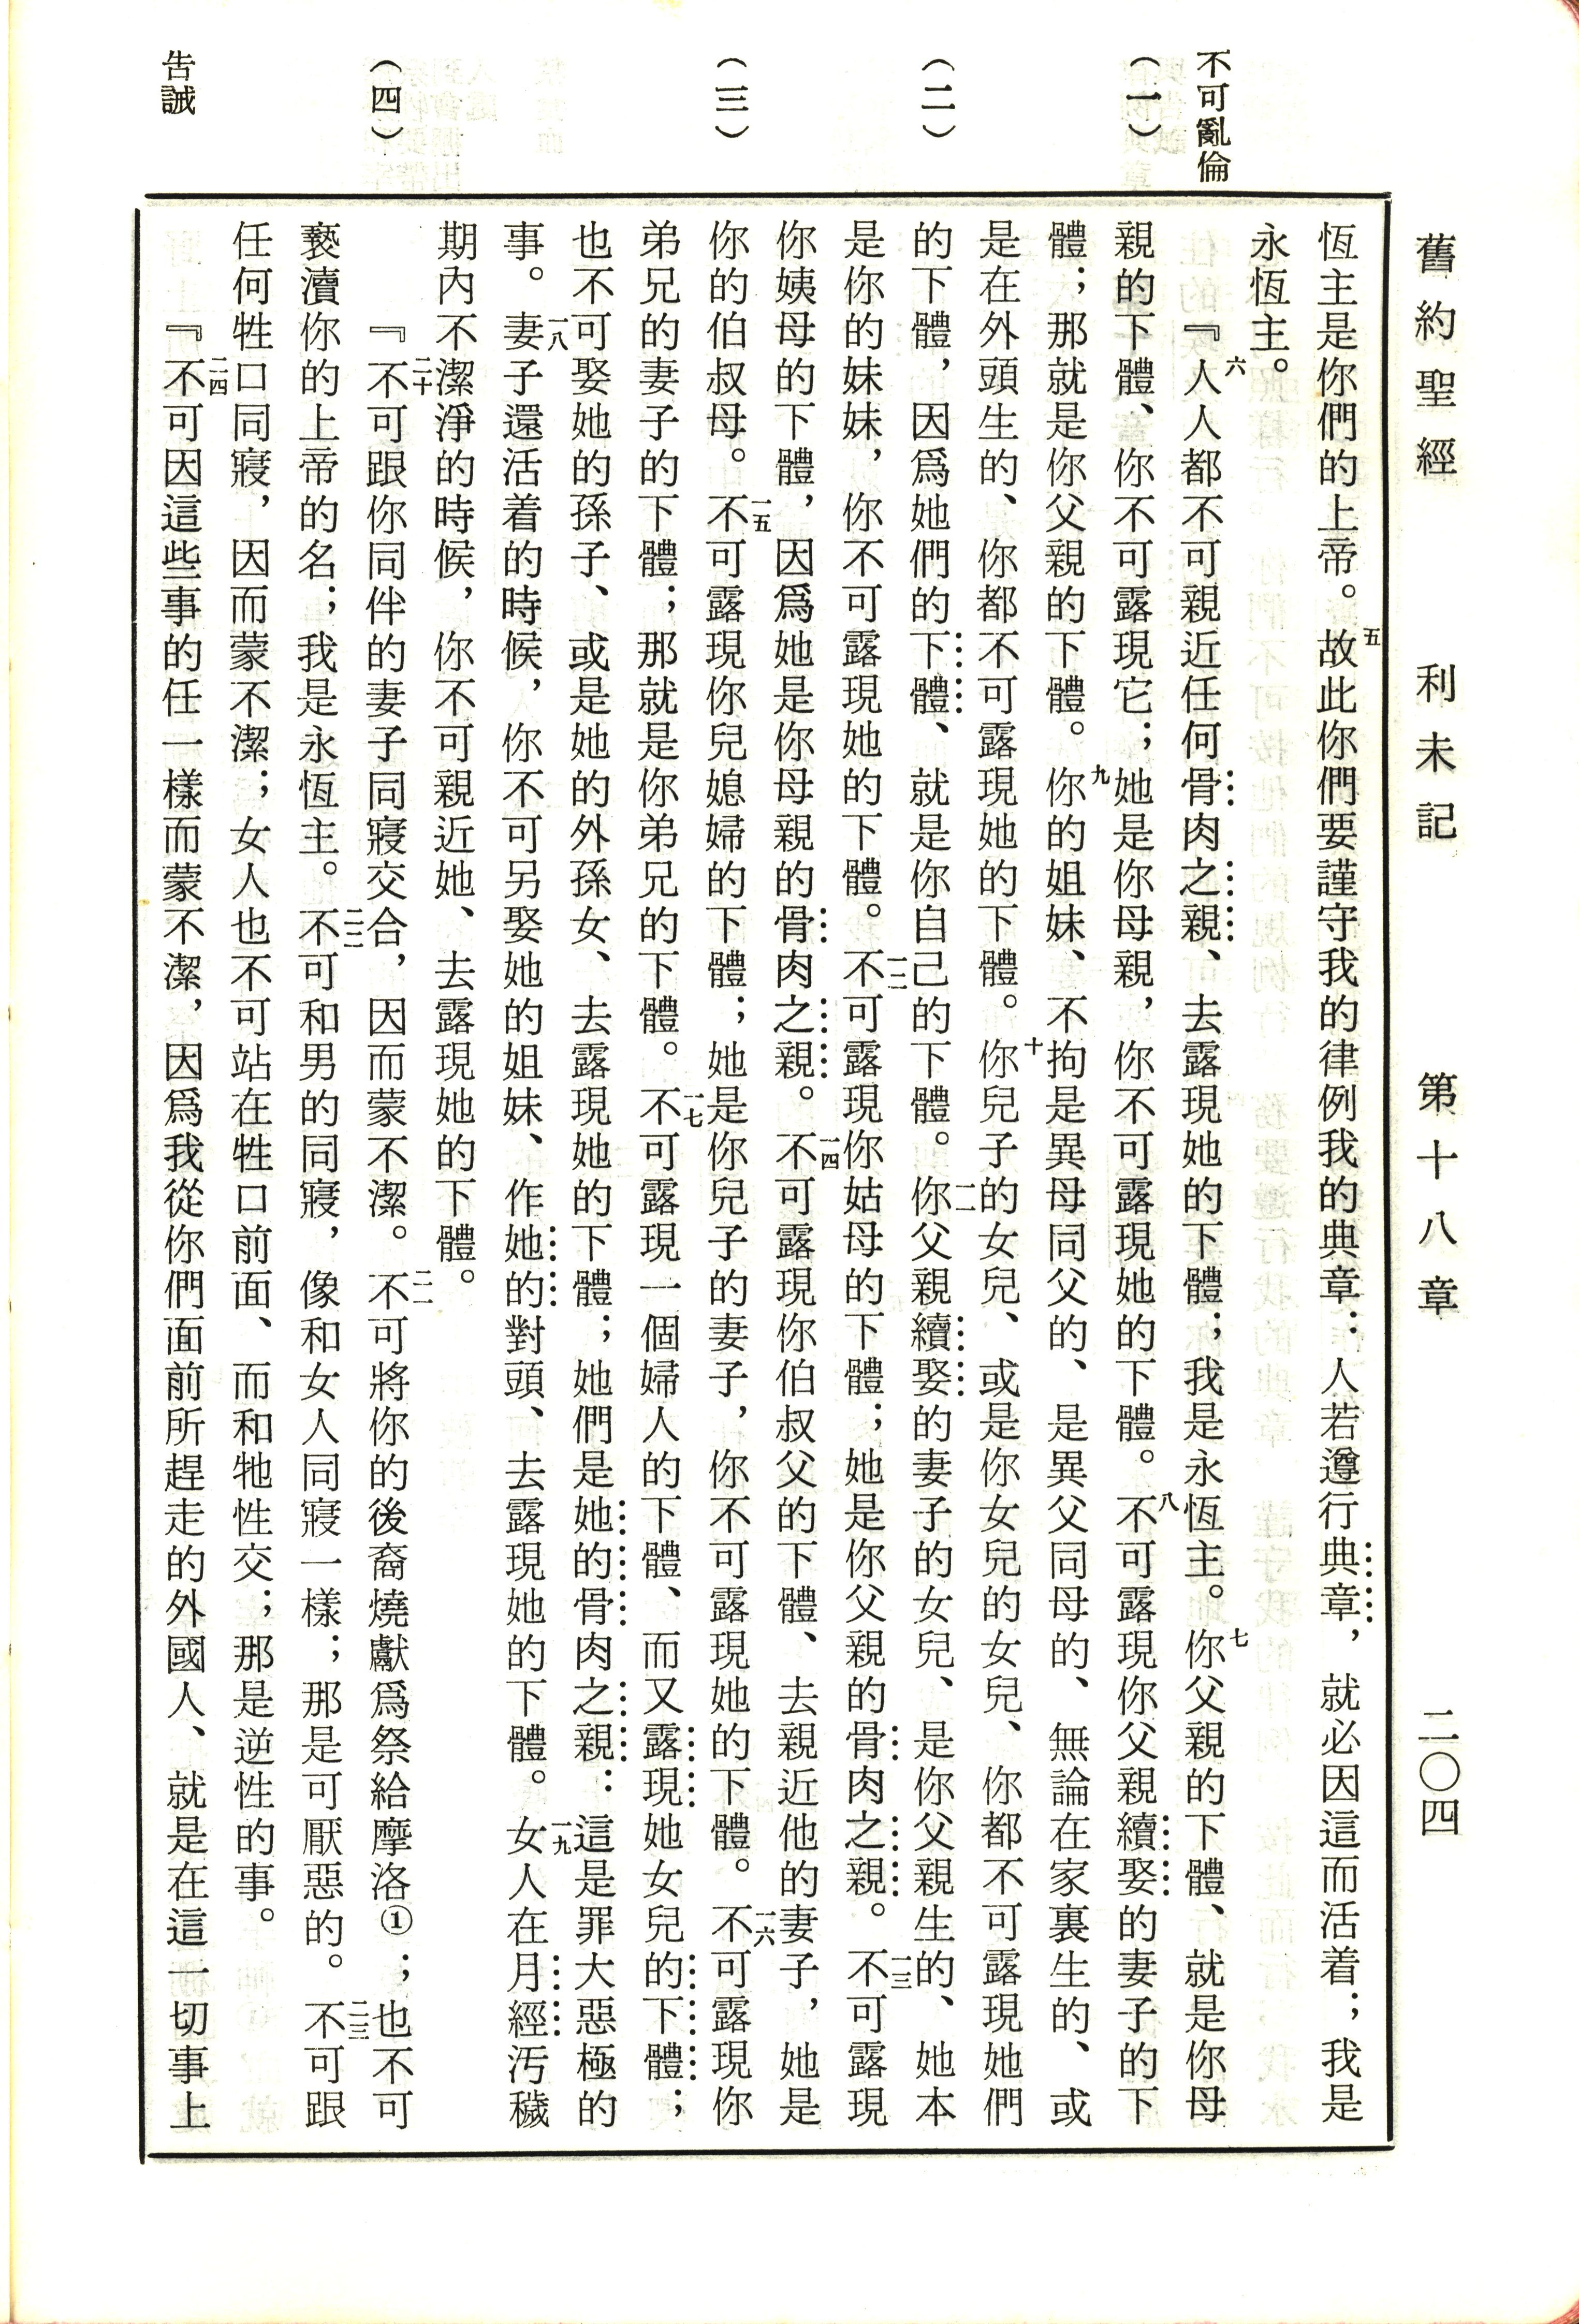 舊約聖經　利未記　第十八章　二〇四
不可亂倫
（一）
（二）
（三）
（四）
告誡
恆主是你們的上帝。五故此你們要謹守我的律例我的典章：人若遵行典章，就必因這而活着；我是
永恆主。
『六人人都不可親近任何骨肉之親、去露現她的下體；我是永恆主。七你父親的下體、就是你母
親的下體、你不可露現它；她是你母親，你不可露現她的下體。八不可露現你父親續娶的妻子的下
體；那就是你父親的下體。九你的姐妹、不拘是異母同父的、是異父同母的、無論在家裏生的、或
是在外頭生的、你都不可露現她的下體。十你兒子的女兒、或是你女兒的女兒、你都不可露現她們
的下體，因爲她們的下體、就是你自己的下體。一一你父親續娶的妻子的女兒、是你父親生的、她本
是你的妹妹，你不可露現她的下體。一二不可露現你姑母的下體；她是你父親的骨肉之親。一三不可露現
你姨母的下體，因爲她是你母親的骨肉之親。一四不可露現你伯叔父的下體、去親近他的妻子，她是
你的伯叔母。一五不可露現你兒媳婦的下體；她是你兒子的妻子，你不可露現她的下體。一六不可露現你
弟兄的妻子的下體；那就是你弟兄的下體。一七不可露現一個婦人的下體、而又露現她女兒的下體；
也不可娶她的孫子、或是她的外孫女、去露現她的下體；她們是她的骨肉之親：這是罪大惡極的
事。一八妻子還活着的時候，你不可另娶她的姐妹、作她的對頭、去露現她的下體。一九女人在月經汚穢
期內不潔淨的時候，你不可親近她、去露現她的下體。
『二十不可跟你同伴的妻子同寢交合，因而蒙不潔。二一不可將你的後裔燒獻爲祭給摩洛①；也不可
褻瀆你的上帝的名；我是永恆主。二二不可和男的同寢，像和女人同寢一樣；那是可厭惡的。二三不可跟
任何牲口同寢，因而蒙不潔；女人也不可站在牲口前面、而和牠性交；那是逆性的事。
『二四不可因這些事的任一樣而蒙不潔，因爲我從你們面前所趕走的外國人、就是在這一切事上